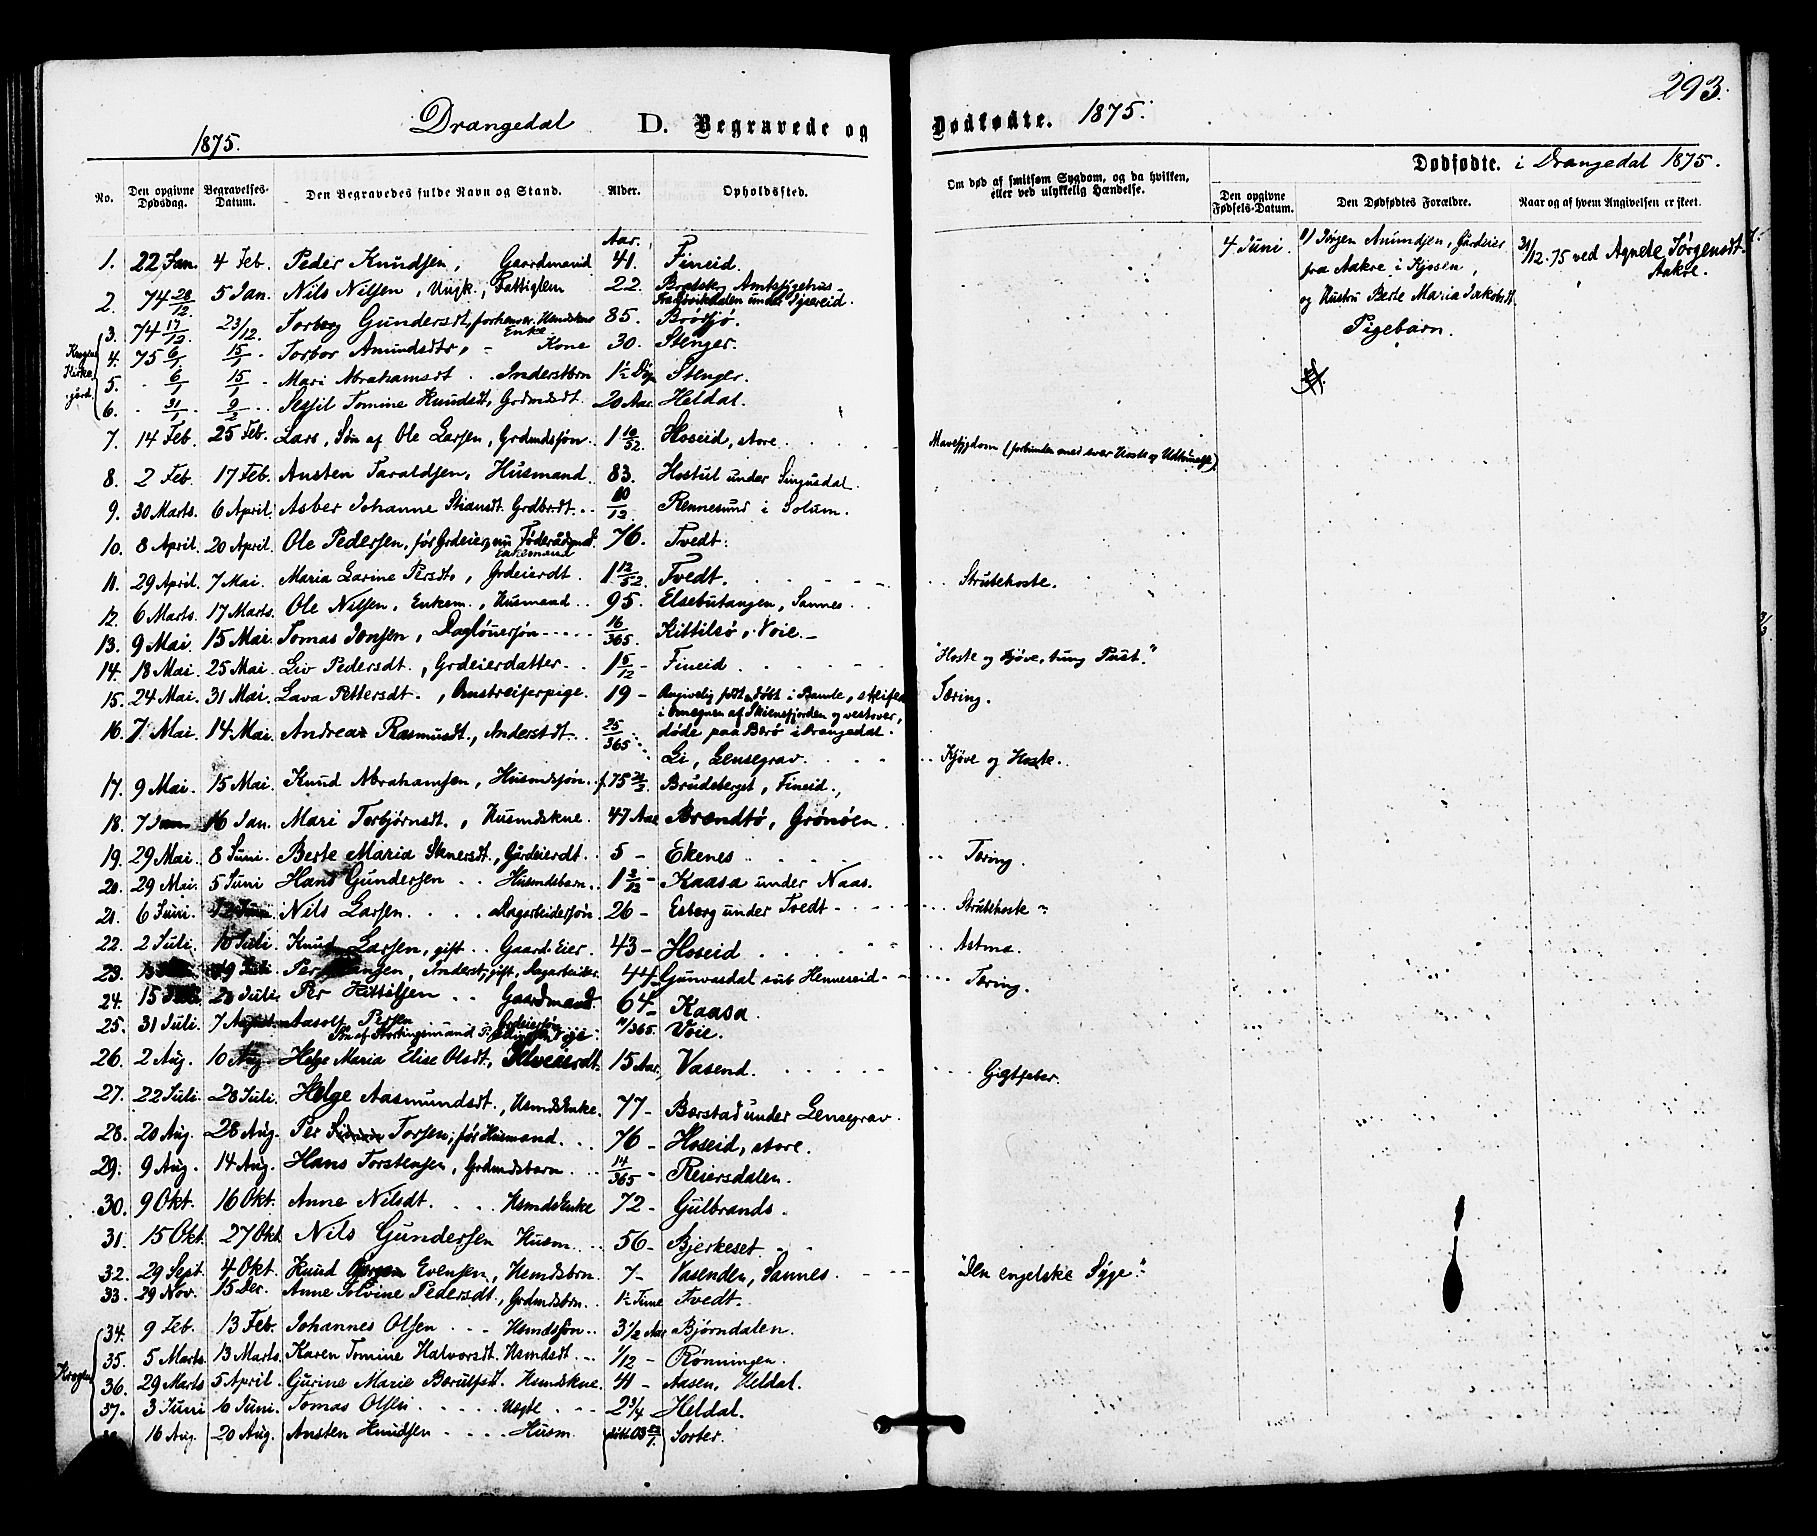 293.
Drangedal D. Begravede og Dødfødte. 1875.
1875.
Dødfødte. i Drangedal 1875.
No. Den opgivne Dødsdag. Begravelses-Datum. Den Begravedes fulde Navn og Stand. Alder. Opholdssted.
Om død af smitsom Sygdom, og da hvilken, eller ved ulykkelig Hændelse. Den opgivne Fødsels-Datum. Den Dødfødtes Forældre. Naar og af hvem Angivelsen er skeet.
Aar.
1. 22 Jan. 4 Feb. Peder Knudsen, Gaardmand 41. Fineid.
2. 74 28/12 5 Jan. Nils Nilsen, Ungk., Fattiglem 22. Bratsberg Amtssygehus
3. 74 17/12 23/12. Torberg Gundersdt, forhenver. Husmdskne Enke 85. Brødsjø.
4. 75 6/1 15/1 Torbor Amundsdtr, Kone 30. Stenger.
5. 6/1 15/1 Mari Abrahamsdt. Inderstbrn 1½ Døgn Stenger.
6. 31/1 9/2 Sessil Tomine Knudsdt, Grdmdsdt. 20 Aar. Heldal.
Kirke
7. 14 Feb. 25 Feb. Lars, Søn af Ole Larsen, Grdmdssøn. 1 10/52. Hoseid, store.
Mavesygdom (forbunden med svær Hoste og
8. 2 Feb. 17 Feb. Austen Taraldsen, Husmand. 83. Hostul under Singusdal.
9. 30 Marts. 6 April. Asber Johanne Stiansdt. Grdbrdt. 10/12 Rennesund i Solum.
10. 8 April. 20 April. Ole Pedersen, før Grdeier, nu Føderådsmd. Enkemand 76. Tvedt.
11. 29 April. 7 Mai. Maria Larine Persdt, Grdeierdt. 1 12/52. Tvedt. Strubehoste.
12. 6 Marts. 17 Marts. Ole Nilsen, Enkem., Husmand. 95. Elsebutangen, Sannes.
13. 9 Mai. 15 Mai. Tomas Jonsen, Daglønersøn 16/365. Kittilsø, Voie.
14. 18 Mai. 25 Mai. Liv Pedersdt., Grdeierdatter. 1 5/12 Fineid. "Hoste og Kjøve, tung Pust."
15. 24 Mai. 31 Mai. Lava Pettersdt., Omstreiferpige. 19 Angivelig født og døbt i Bamle, Tæring.
i Omegnen af Skiensfjorden og vestover,
døde paa Berø i Drangedal.
16. 7 Mai. 14 Mai. Andrea Rasmusdt., Inderstdt. 25/365 Li, Lensegrav. Kjøve og Hoste.
17. 9 Mai. 15 Mai. Knud Abrahamsen, Husmdsøn. f. 75 Brudeberget, Fineid.
18. 7 Jan 16 Jan. Mari Torbjørnsdt., Husmdskne. 47 Aar Brændtø, Grønøen.
19. 29 Mai. 8 Juni. Berte Maria Sknersdt., Gårdeierdt. 5 Ekenes Tæring.
20. 29 Mai. 5 Juni Hans Gundersen Husmdsbarn. 1 3/12 Kaasa under Naas.
21. 6 Juni. 12 Juni Nils Larsen. Dagarbeidersøn. 26 Esborg under Tvedt Strubehoste
22. 2 Juli. 10 Juli. Knud Larsen, gift. Gaard-Eier. 43 Hoseid Astma.
23. 19 Juli. Per Inderst, gift, Dagarbeider. 44 Gunvasdal sub Henneseid Tæring.
24. 15 28 Juli. Per Kittilsen Gaardmand 64 Kaasa.
25. 31 Juli. 7 August Aasolf Persen Grdeiersøn 11/365. Voie.
Søn af Stortingsmand P.
26. 2 Aug. 10 Aug. Helge Maria Elise Olsdt. 15 Aar, Vasend. Gigtfeber.
27. 22 Juli. 28 Juli. Helge Aasmundsdt., HusmdsEnke. 77 Børstad under Lensegrav.
28. 20 Aug. 28 Aug. Per Torsen; før Husmand. 76 Hoseid, store.
29. 9 Aug. 14 Aug. Hans Torstensen, Grdmdsbarn. 14/365 Reiersdalen.
30. 9 Okt. 16 Okt. Anne Nilsdt. HsmdsEnke 72 Gulbrands.
31. 15 Okt. 27 Okt. Nils Gundersen Husm. 56 Bjerkeset.
32. 29 Sept. 4 Okt. Knud Evensen, Hsmdsbrn. 7 Vasenden, Sannes. "Den engelske Syge."
33. 29 Nov. 15 Dec. Anne Tolvine Pedersdt, Grdmdsbrn. 1½ Time Tvedt.
34. 9 Feb. 13 Feb. Johannes Olsen Hsmdssøn 3½ Aar Bjørndalen.
35. 5 Marts. 13 Marts. Karen Tomine Halvorsdt. Hsmdsdt. 1/12 Rønningen.
36. 29 Marts 5 April. Gurine Marie Berulfsdt. Husmdskne. 41 Aasen, Heldal.
37. 3 Juni 6 Juni. Tomas Olsen Ungk. 2 3/4 Heldal.
16 Aug. 20 Aug. Austen Knudsen Husm. Sorter.
4 Juni. 1) Jörgen Anundsen, Gårdeier
fra Aakre i Kjosen,
og Hustru Berte Maria Jakobsdt.
Pigebarn.
31/12 75 ved Agnete Jørgensdt. Aakre.